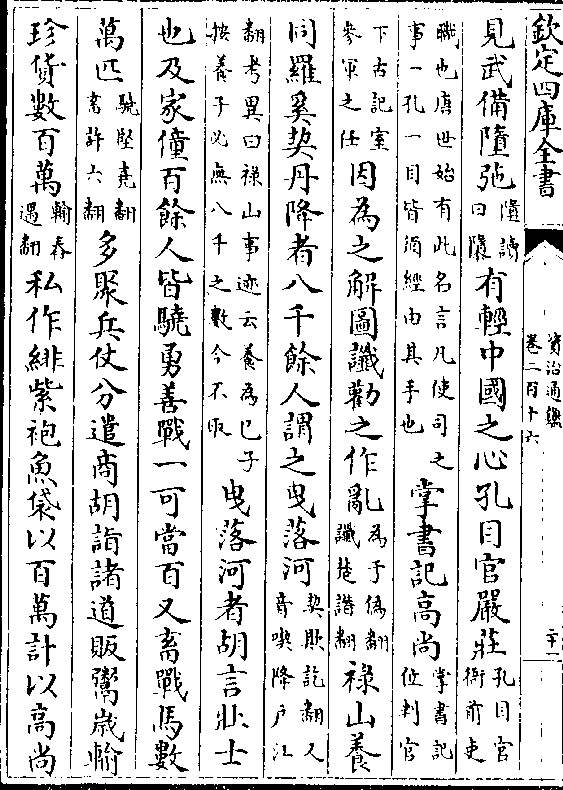 欽定四庫全書
資治通鑑
卷二百十六
見武備墮弛墮讀曰隳有輕中國之心孔目官嚴莊孔目官衙前吏
職也唐世始有此名言凡使司之事一孔一目皆須經由其手也掌書記高尚掌書記位判官
下古記室參軍之任因為之解圖讖勸之作亂為于偽翻讖楚譖翻祿山養
同羅奚契丹降者八千餘人謂之曳落河契欺訖翻又音喫降户江
翻考異曰祿山事迹云養為己子按養子必無八千之數今不取曳落河者胡言壯士
也及家僮百餘人皆驍勇善戰一可當百又畜戰馬數
萬匹驍堅堯翻畜許六翻多聚兵仗分遣商胡詣諸道販鬻歲輸
珍貨數百萬輸舂遇翻私作緋紫袍魚袋以百萬計以高尚